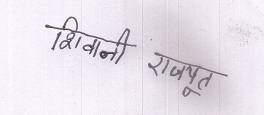 शिवानी राजपूत